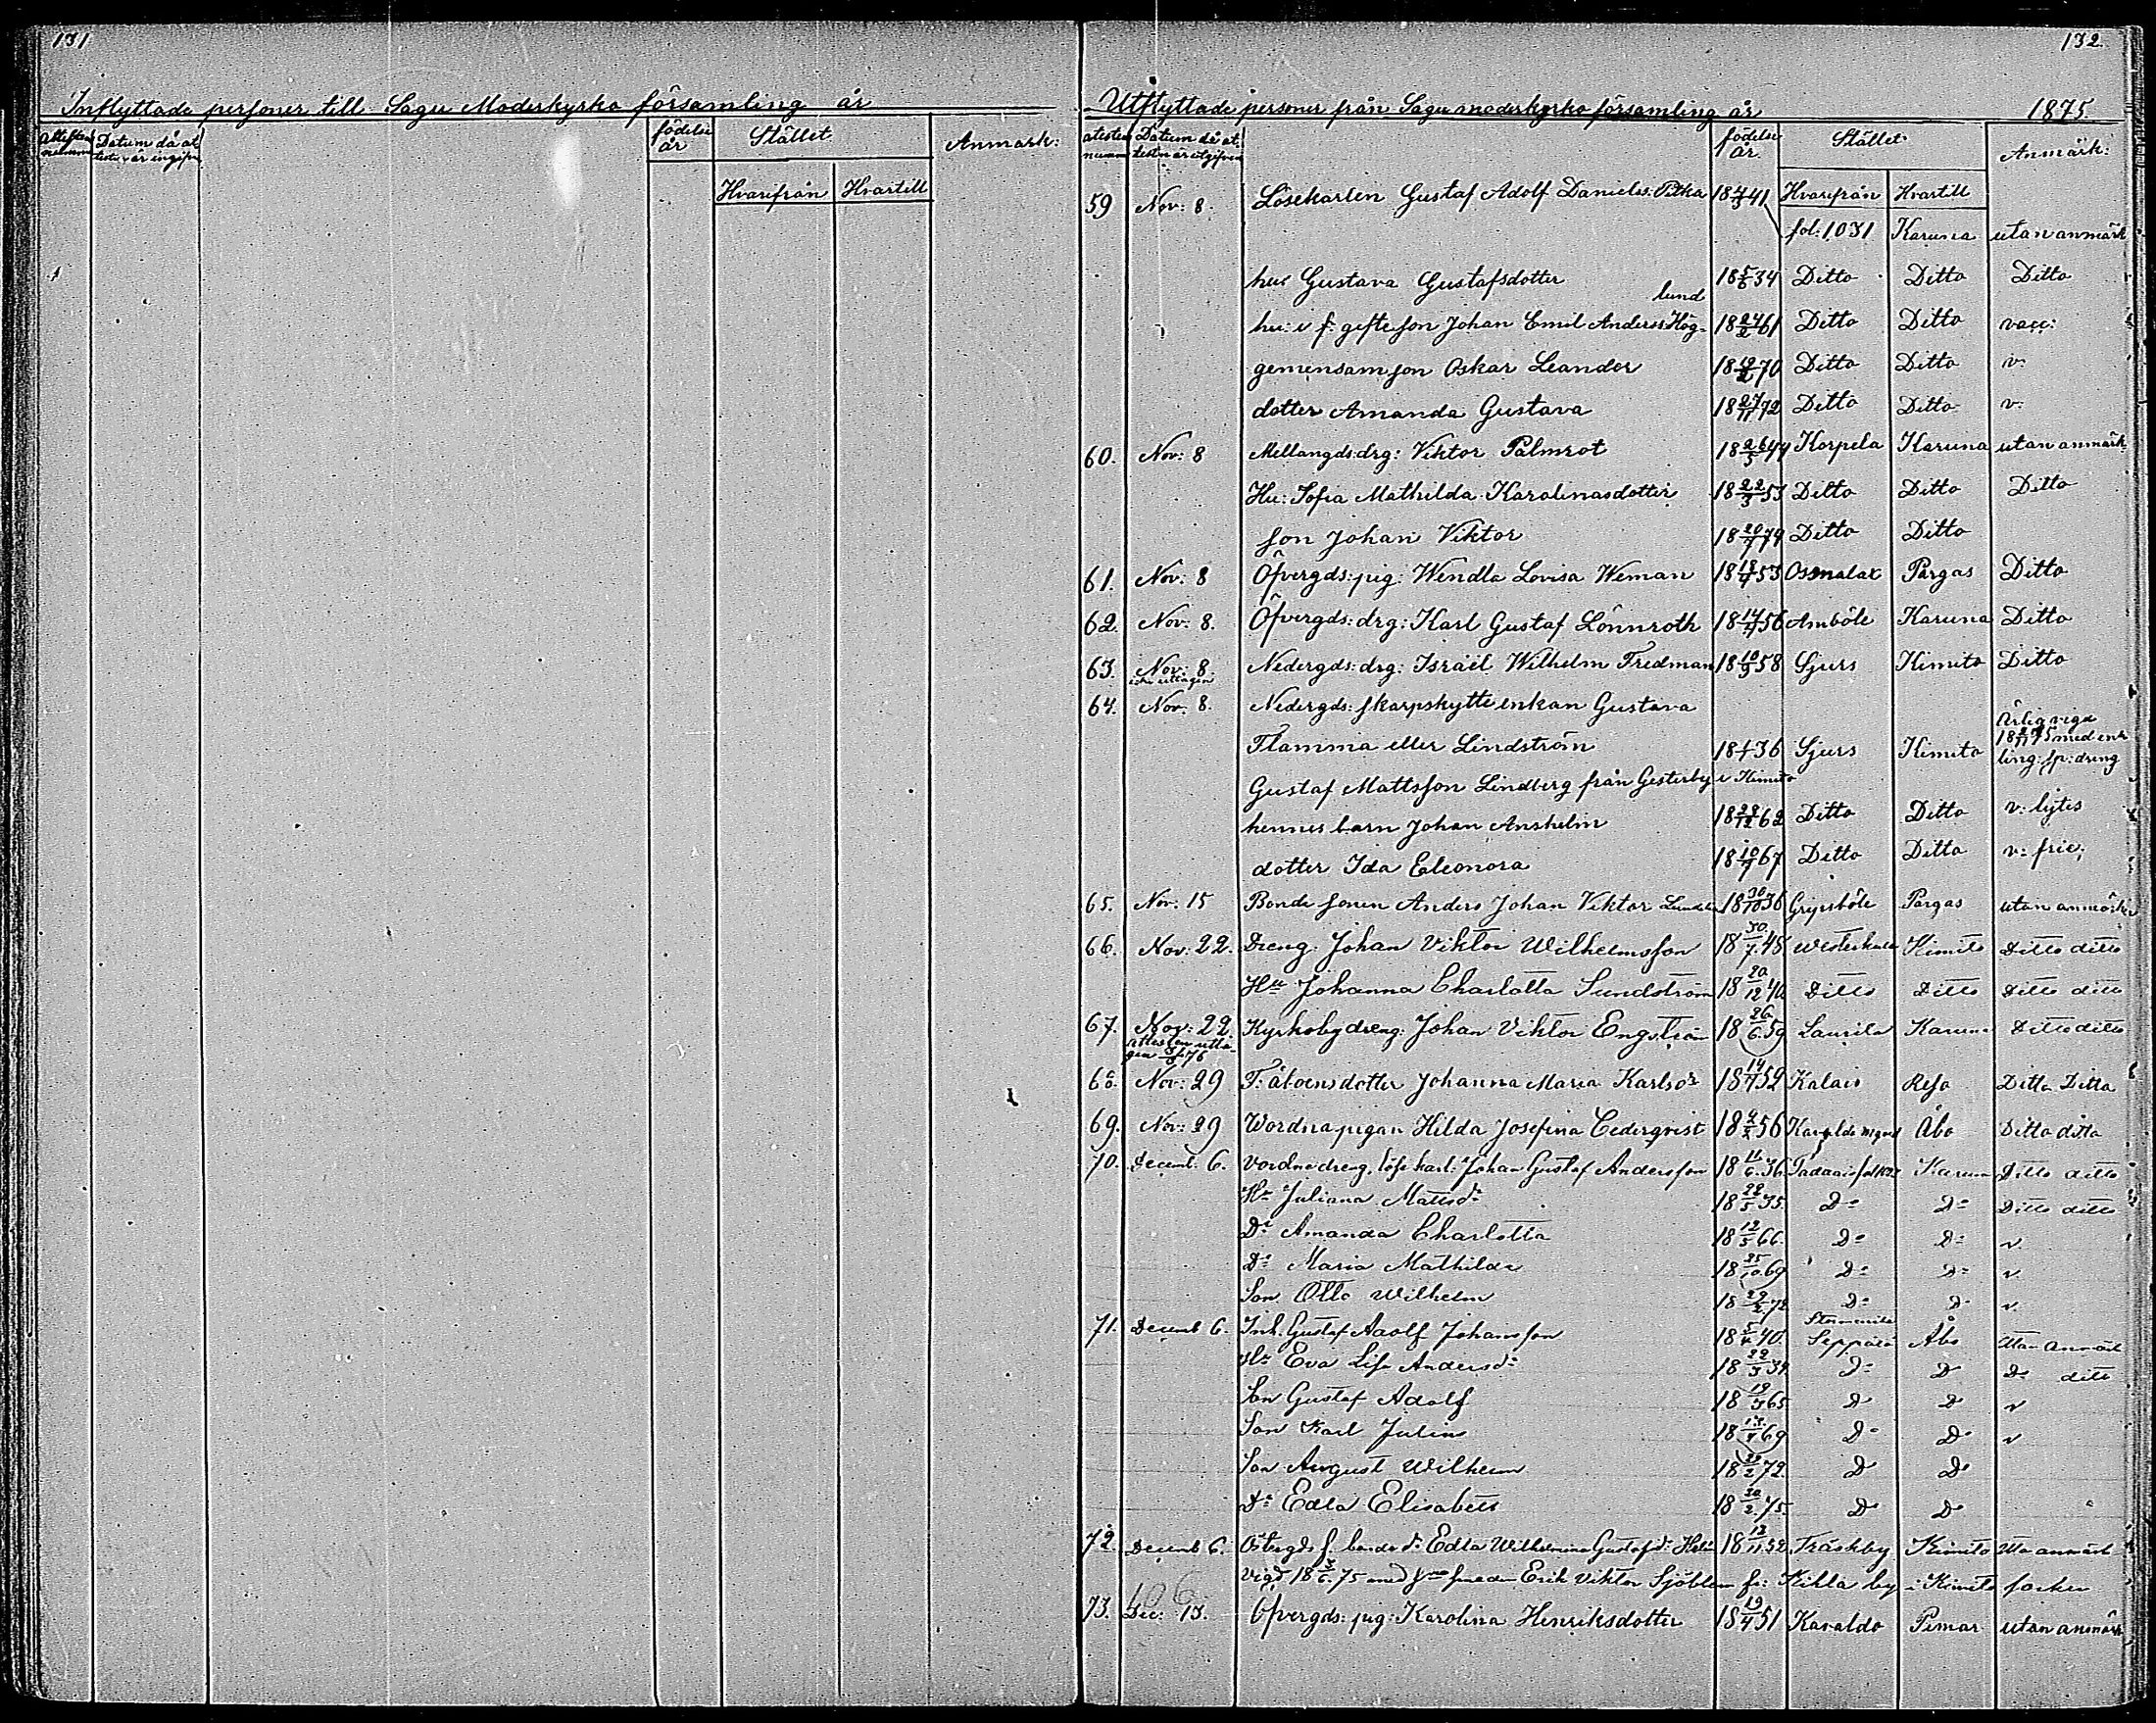 131
Inflyttade personer till Sagu Moderkyrko församling år
Attestens nummer
Datum då attesten är ingifven
födelse år
Stället
Anmärk:
Hvarifrån Hvartill
132.
Utflyttade personer från Sagu moderkyrko församling år 1875.
Datum då attesten är utgifven
födelse år
Stället
Anmärk:
Hvarifrån Hvartill
59 Nov: 8. Lösekarlen Gustaf Adolf Daniels: Pitka 41
fol: 1031 Karuna utan anmärk
hu: Gustava Gustafsdotter 34 Ditto Ditto Ditto
lund
hu: i f: gifte son Johan Emil Anderss: Hög- 18 24/2 61 Ditto Ditto vacc:
gemensam son Oskar Leander 70 Ditto Ditto v.
dotter Amanda Gustava 18 27/11 72 Ditto Ditto v.
60. Nov: 8 Mellangds: drg: Viktor Palmrot 18 26/3 44 Korpela Karuna utan anmärk
Hu: Sofia Mathilda Karolinasdotter 18 22/3 53 Ditto Ditto Ditto
son Johan Viktor 18 20/7 74 Ditto Ditto
61. Nov: 8 Öfvergds: pig: Wendla Lovisa Weman 53 Osmalax Pargas Ditto
62. Nov: 8. Öfvergds: drg: Karl Gustaf Lönnroth 56 Amböle Karuna Ditto
63. Nov: 8. Nedergds: drg: Israël Wilhelm Fredman 58 Sjurs Kimito Ditto
icke uttagen
64. Nov: 8. Nedergds: skarpskytte enkan Gustava
Flamma eller Lindström 36 Sjurs Kimito
Ärlig vigd 75 med enkling: sp: dreng
Gustaf Mattsson Lindberg från Gesterby i Kimito
hennes barn Johan Anshelm 18 28/12 62 Ditto Ditto v: lytes
dotter Ida Eleonora 18 10/7 67 Ditto Ditto v: frie:
65. Nov: 15 Bonde sonen Anders Johan Viktor 18 30/10 36 Gripsböle Pargas utan anmärk
66. Nov: 22. Dreng: Johan Viktor Wilhelmsson 18 30/7 48 Kimito Ditto ditto
Hu Johanna Charlotta Sundström 18 20/12 40 Ditto Ditto Ditto ditto
67. Nov: 22 Kyrkobydreng: Johan Viktor Engström 18 26/6 59 Laurila Karuna Ditto ditto
attesten utta-
gen 76
68. Nov: 29 Johanna Maria Karlsdr 52 Kalais Reso Ditto Ditto
69. Nov: 29 Wordna pigan Hilda Josefina Cederqvist 56 Åbo Ditto ditto
70. Decemb: 6. Vordne dreng, löse karl: Johan Gustaf Andersson 18 11/6 36 Karuna Ditto ditto
Hu Juliana Mattsdr 18 22/5 35. Do Do Ditto ditto
Dr Amanda Charlotta 18 12/5 66. Do Do v.
Dr Maria Mathilda 18 25/10 69 Do Do v.
Son Otto Wilhelm 18 29/2 72 Do Do v.
71. Decemb 6. Inh. Gustaf Adolf Johansson 40. Seppälä Åbo Utan anmärk
Hu Eva Lisa Andersdr 18 22/3 34 Do Do Do ditto
Son Gustaf Adolf 65 Do Do v
Son Karl Julius 69 Do Do v
Son August Wilhelm 72. Do Do
Dr Edla Elisabeth 18 20/2 75. Do Do
72 Decemb 6. Edla Wilhelmina Gustafsdr 18 13/11 52 Träskby Kimito Utan anmärk
vigd 75 med Erik Viktor Sjöblom fr: Kikla by i Kimito socken
73. Dec: 13. Öfvergds: pig: Karolina Henriksdotter 18 19/4 51 Karaldo Pemar utan anmärk